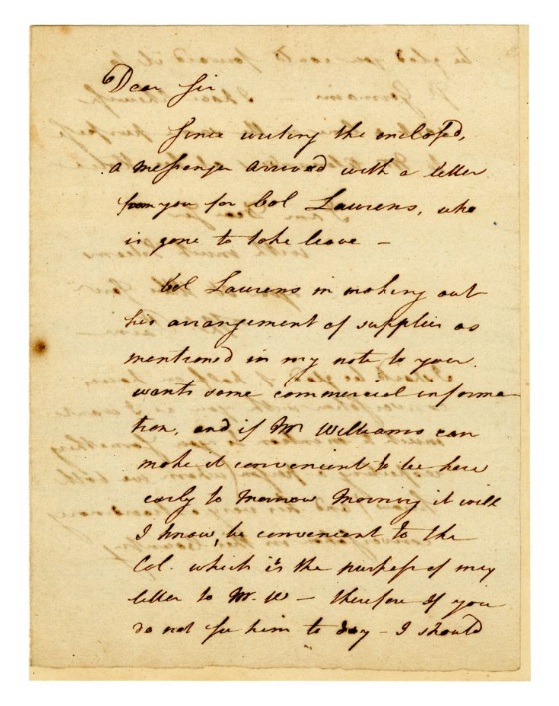 Dear Sir
Since writing the enclosed,
a messenger arrived with a letter
from you for Col Laurens, who
is gone to take leave —
Col Laurens in making out
his arrangement of supplies as
mentioned in my note to you.
wants some commercial informa-
tion, and if Mr Williams can
make it convenient to be here
early to Morrow Morning it will
I know, be convenient to the
Col. which is the purpose of my
letter to Mr. W — therefore if you
do not see him to day — I should